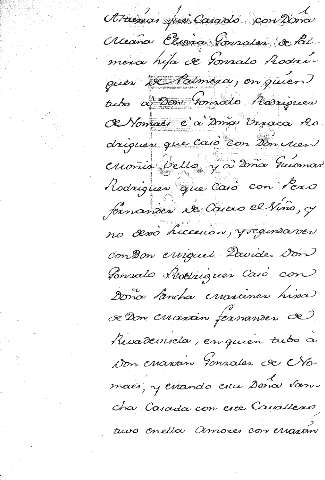 Arainas fue Casado con Doña
Maria Elvira Gonzales de Pal-
mera hija de Gonzalo Rodri-
guez de Palmera, en quien
tubo a Don Gonzalo Rodriguez
de Nomaes é a Doña Urraca Ro-
driguez que Casó con Don Men
Moniz Vello, y á Doña Guiomar
Rodriguez que Casó con Pero
Fernandez de Castro el Niño, y
no dexó succesion, y segunda vez
con Don Miguel Davide. Don
Gonzalo Rodriguez Casó con
Doña Sancha Martinez hixa
de Don Martin Fernandez de
Rivadeneira, en quien tubo á
Don Martin Gonzalez de No-
maes, y estando esta Doña San-
cha Casada con este Cavallero,
tuvo en ella Amores con Martin